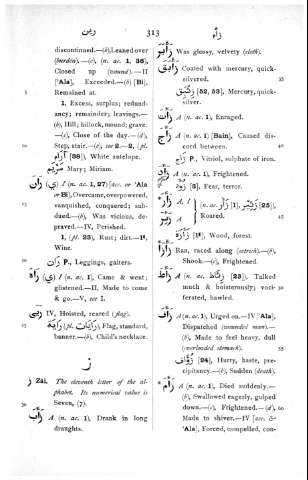 رين 313 زاه
discontinued.—(b), Leaned over
(burden).—(c), (n. ac. 1, 36),
Closed up (wound).—II
['Ala], Exceeded.—(d) [Bi],
Remained at.
1, Excess, surplus; redund-
ancy; remainder; leavings.—
(b), Hill; hillock, mound; grave.
—(c), Close of the day.—(d),
Step, stair.—(e), see 2.—2, (pl.
آرام [38]), White antelope.
Mary; Miriam.
ران (ي) I (n. ac. 1, 27) [acc. or 'Ala
or Bi], Overcame, overpowered,
vanquished, conquered; sub-
dued.—(b), Was vicious, de-
praved.—IV, Perished.
1, (pl. 25), Rust; dirt.—1ᵗ,
Wine.
ران P., Leggings, gaiters.
راه (ي) I (n. ac. 1), Came & went;
glistened.—II, Made to come
& go.—V, see I.
IV, Hoisted, reared (flag).
راية (pl. رايات), Flag, standard,
banner.—(b), Child's necklace.
ز
ز Zai. The eleventh letter of the al-
phabet. Its numerical value is
Seven, (7).
A (n. ac. 1), Drank in long
draughts.
Was glossy, velvety (cloth).
Coated with mercury, quick-
silvered.
[52, 53], Mercury, quick-
silver.
A (n. ac. 1), Enraged.
A (n. ac. 1) [Bain], Caused dis-
cord between.
زاج P., Vitriol, sulphate of iron.
A (n. ac. 1), Frightened.
[3], Fear, terror.
A, I (n. ac. زأر [1], زئير [25]),
A Roared.
[1ᵗ], Wood, forest.
Ran, raced along (ostrich).—(b),
Shook.—(c), Frightened.
A (n. ac. [23]), Talked
much & boisterously; voci-
ferated, bawled.
A (n. ac. 1), Urged on.—IV ['Ala],
Dispatched (wounded man).—
(b), Made to feel heavy, dull
(overloaded stomach).
[24], Hurry, haste, pre-
cipitancy.—(b), Sudden (death).
A (n. ac. 1), Died suddenly.—
(b), Swallowed eagerly, gulped
down.—(c), Frightened.—(d),
Made to shiver.—IV [acc. &
'Ala], Forced, compelled, con-